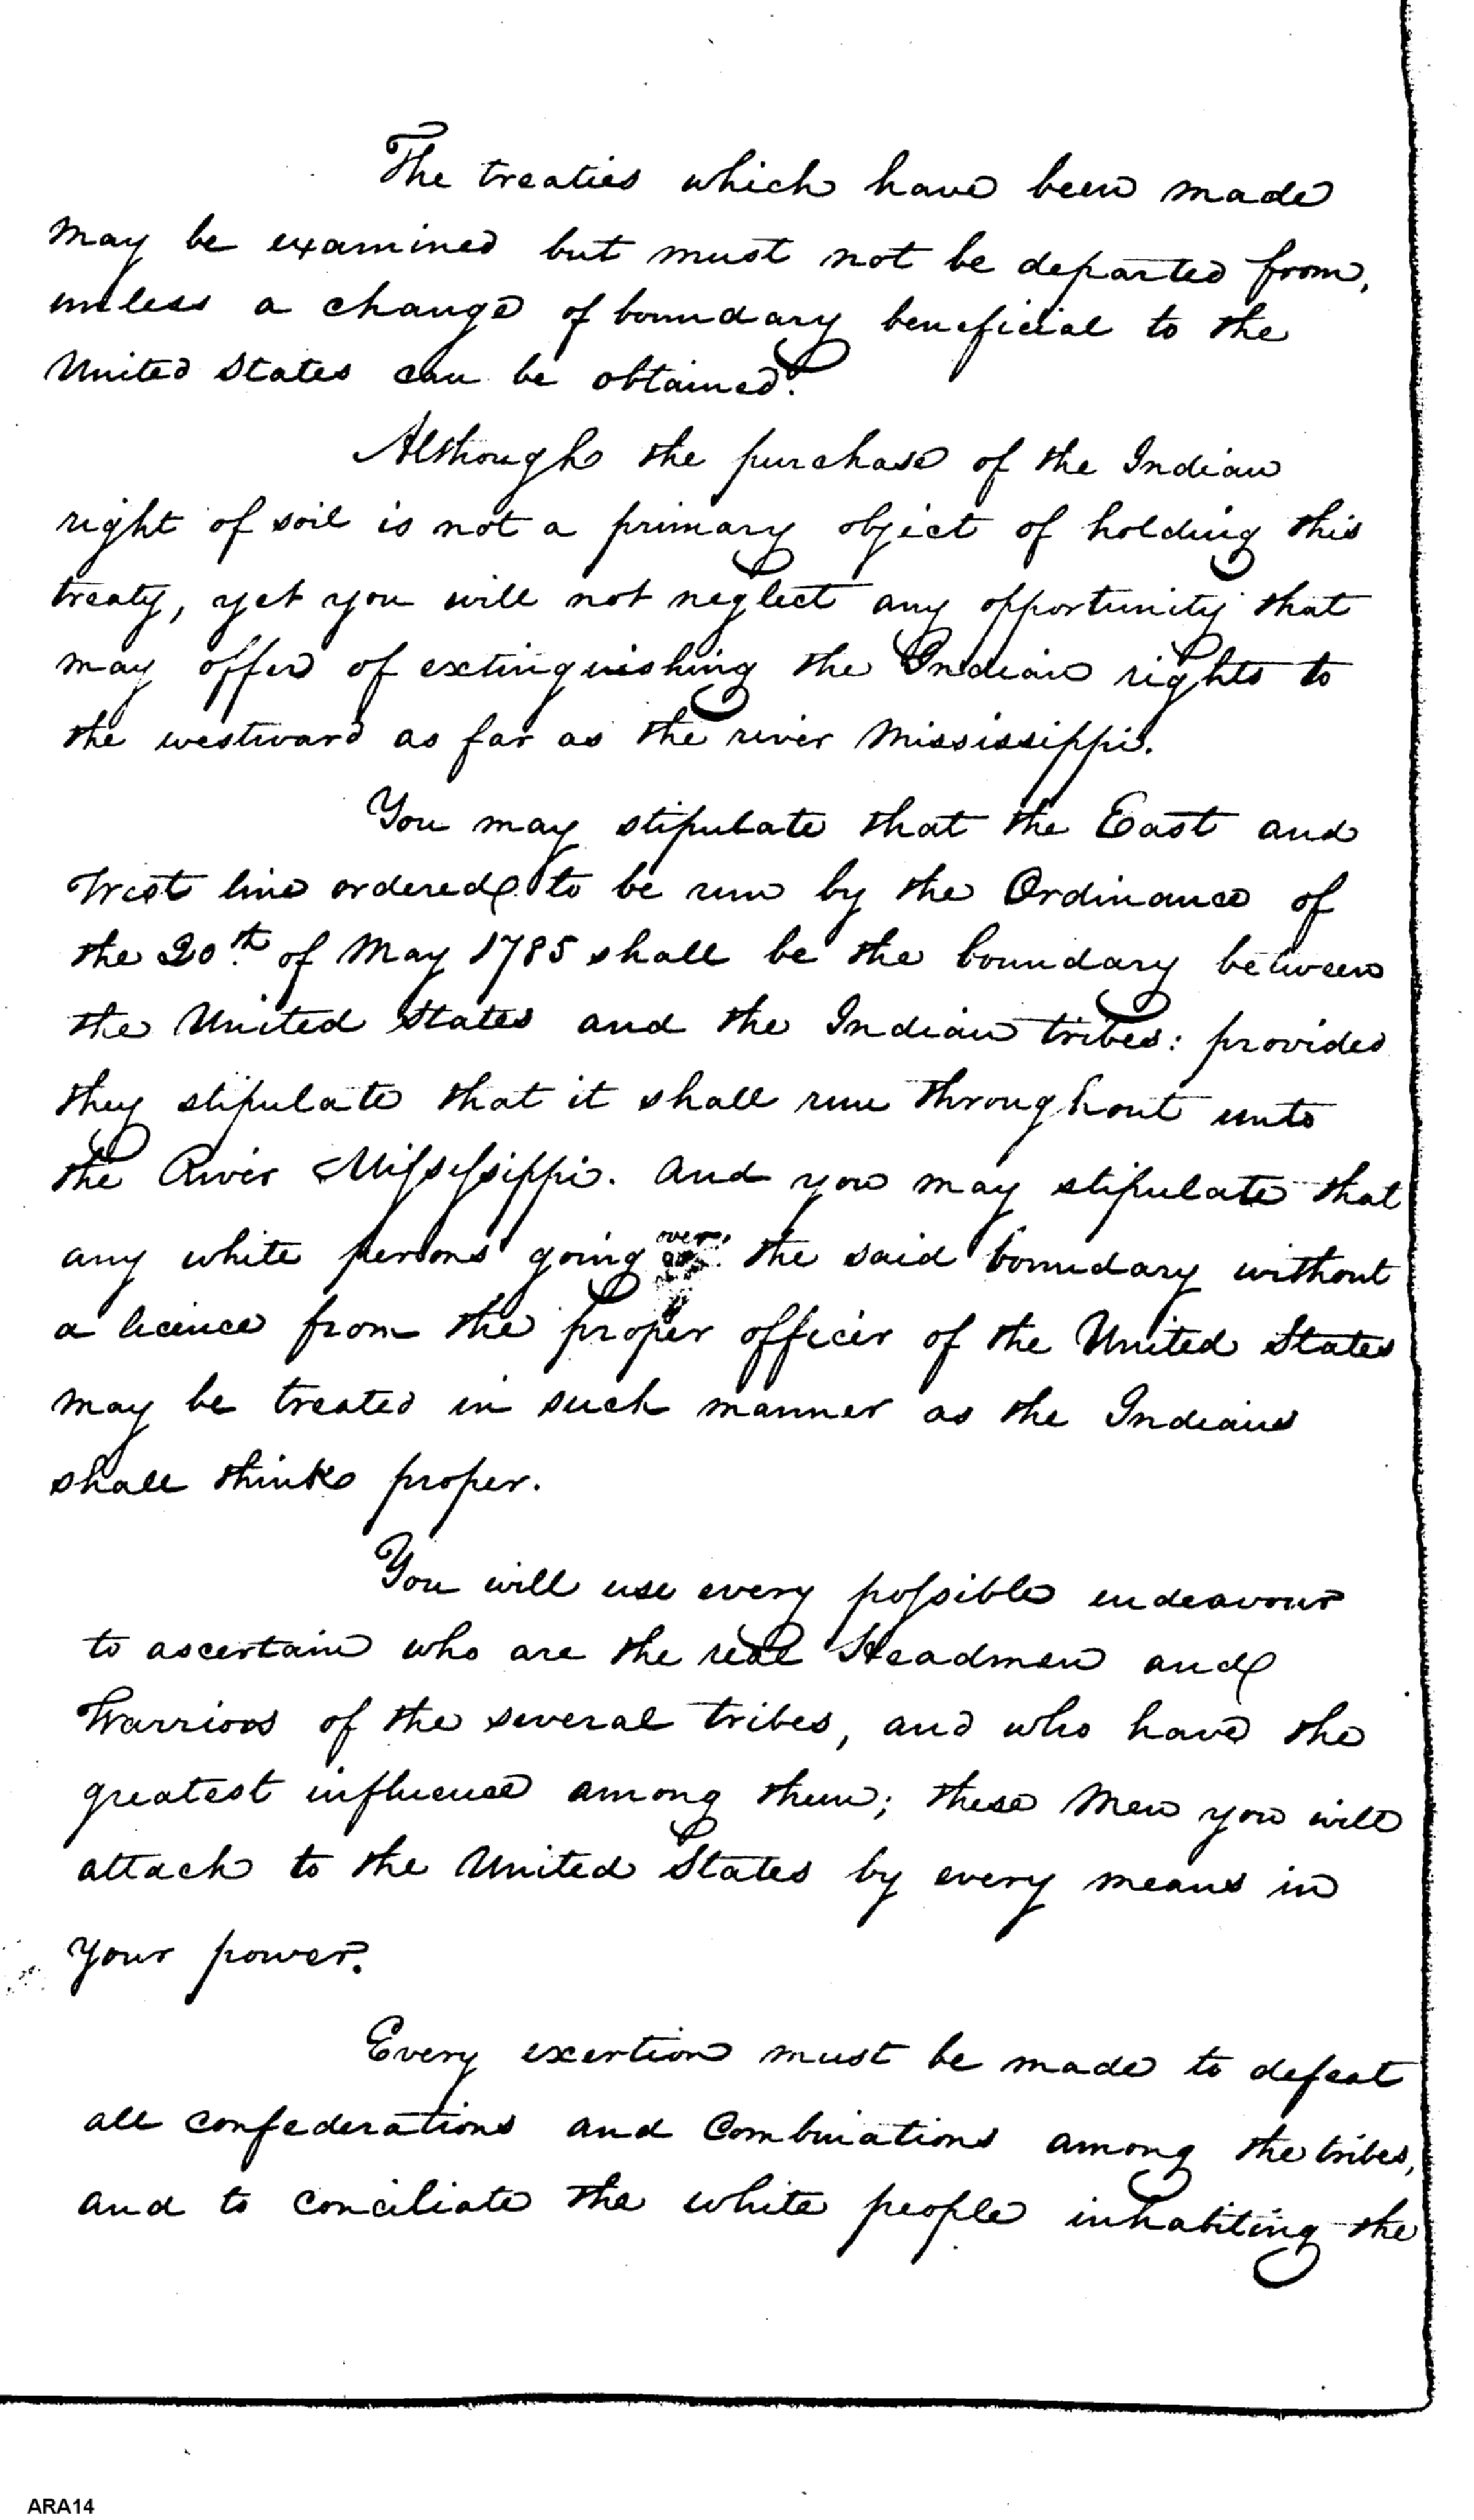 The treaties which have been made
may be examined but must not be departed from,
unless a change of boundary beneficial to the
United States can be obtained.
Although the purchase of the Indian
right of soil is not a primary object of holding this
treaty, yet you will not neglect any opportunity that
may offer of extinguishing the Indian rights to
the westward as far as the river Mississippi.
You may stipulate that the East and
West line ordered to be run by the Ordinance of
the 20th of May 1785 shall be the boundary between
the United States and the Indian tribes: provided
they stipulate that it shall run throughout unto
the River Mississippi. And you may stipulate that
any white persons going over the said boundary without
a licence from the proper officer of the United States
may be treated in such manner as the Indians
shall think proper.
You will use every possible endeavour
to ascertain who are the real Headmen and
Warriors of the several tribes, and who have the
greatest influence among them; these Men you will
attach to the United States by every means in
your power.
Every exertion must be made to defeat
all confederations and Combinations among the tribes,
and to conciliate the white people inhabiting the
ARA14